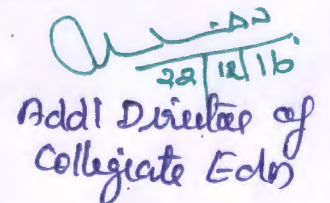 22/12/16
Addl Director of
Collegiate Edn